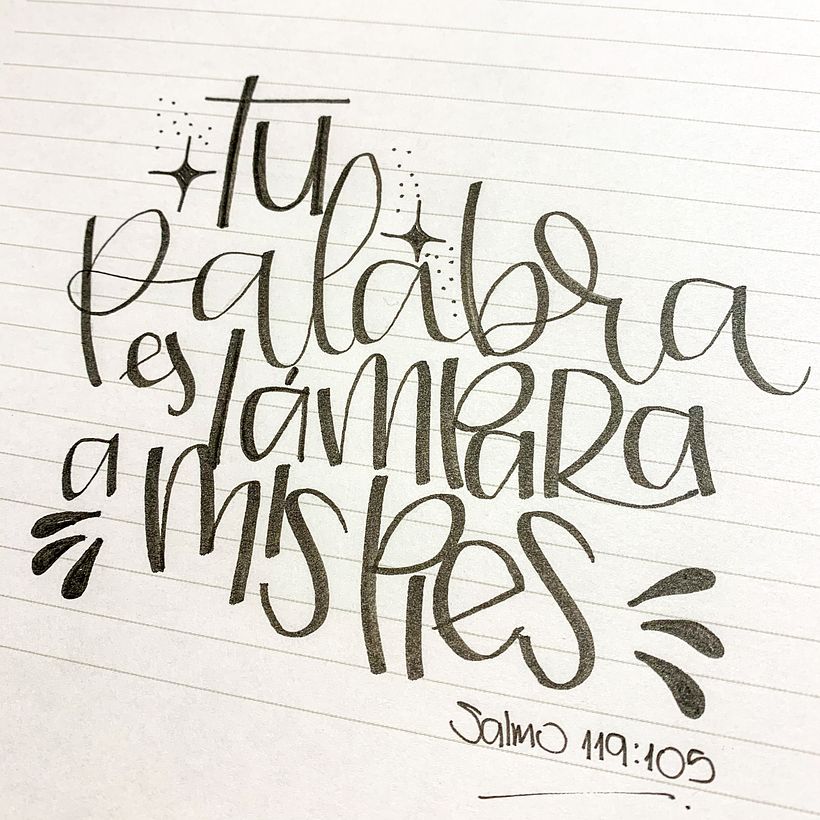 tu
palabra
es lámpara
a mis pies
Salmo 119:105